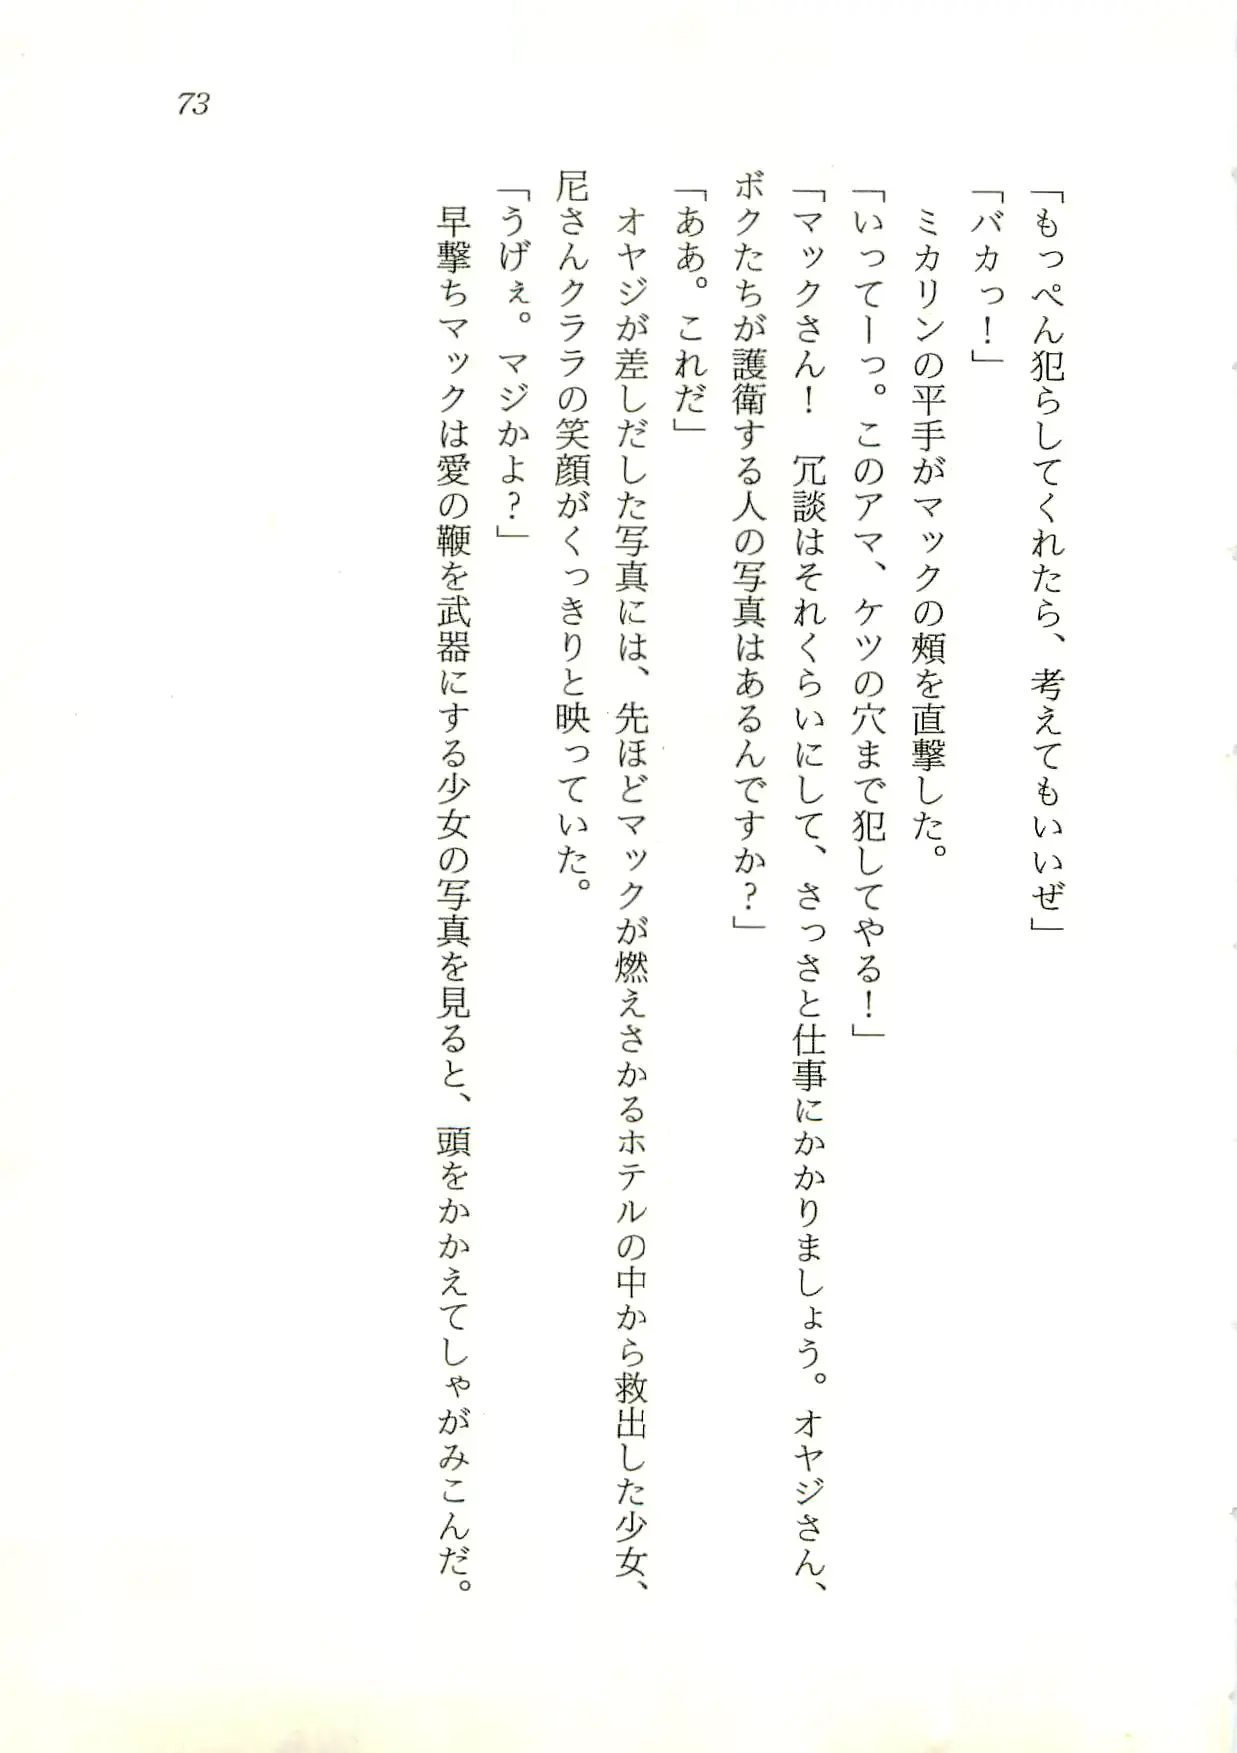 73
「もっぺん犯らしてくれたら、考えてもいいぜ」
「バカっ！」
　ミカリンの平手がマックの頰を直撃した。
「いってーっ。このアマ、ケツの穴まで犯してやる！」
「マックさん！　冗談はそれくらいにして、さっさと仕事にかかりましょう。オヤジさん、
ボクたちが護衛する人の写真はあるんですか？」
「ああ。これだ」
　オヤジが差しだした写真には、先ほどマックが燃えさかるホテルの中から救出した少女、
尼さんクララの笑顔がくっきりと映っていた。
「うげぇ。マジかよ？」
　早撃ちマックは愛の鞭を武器にする少女の写真を見ると、頭をかかえてしゃがみこんだ。